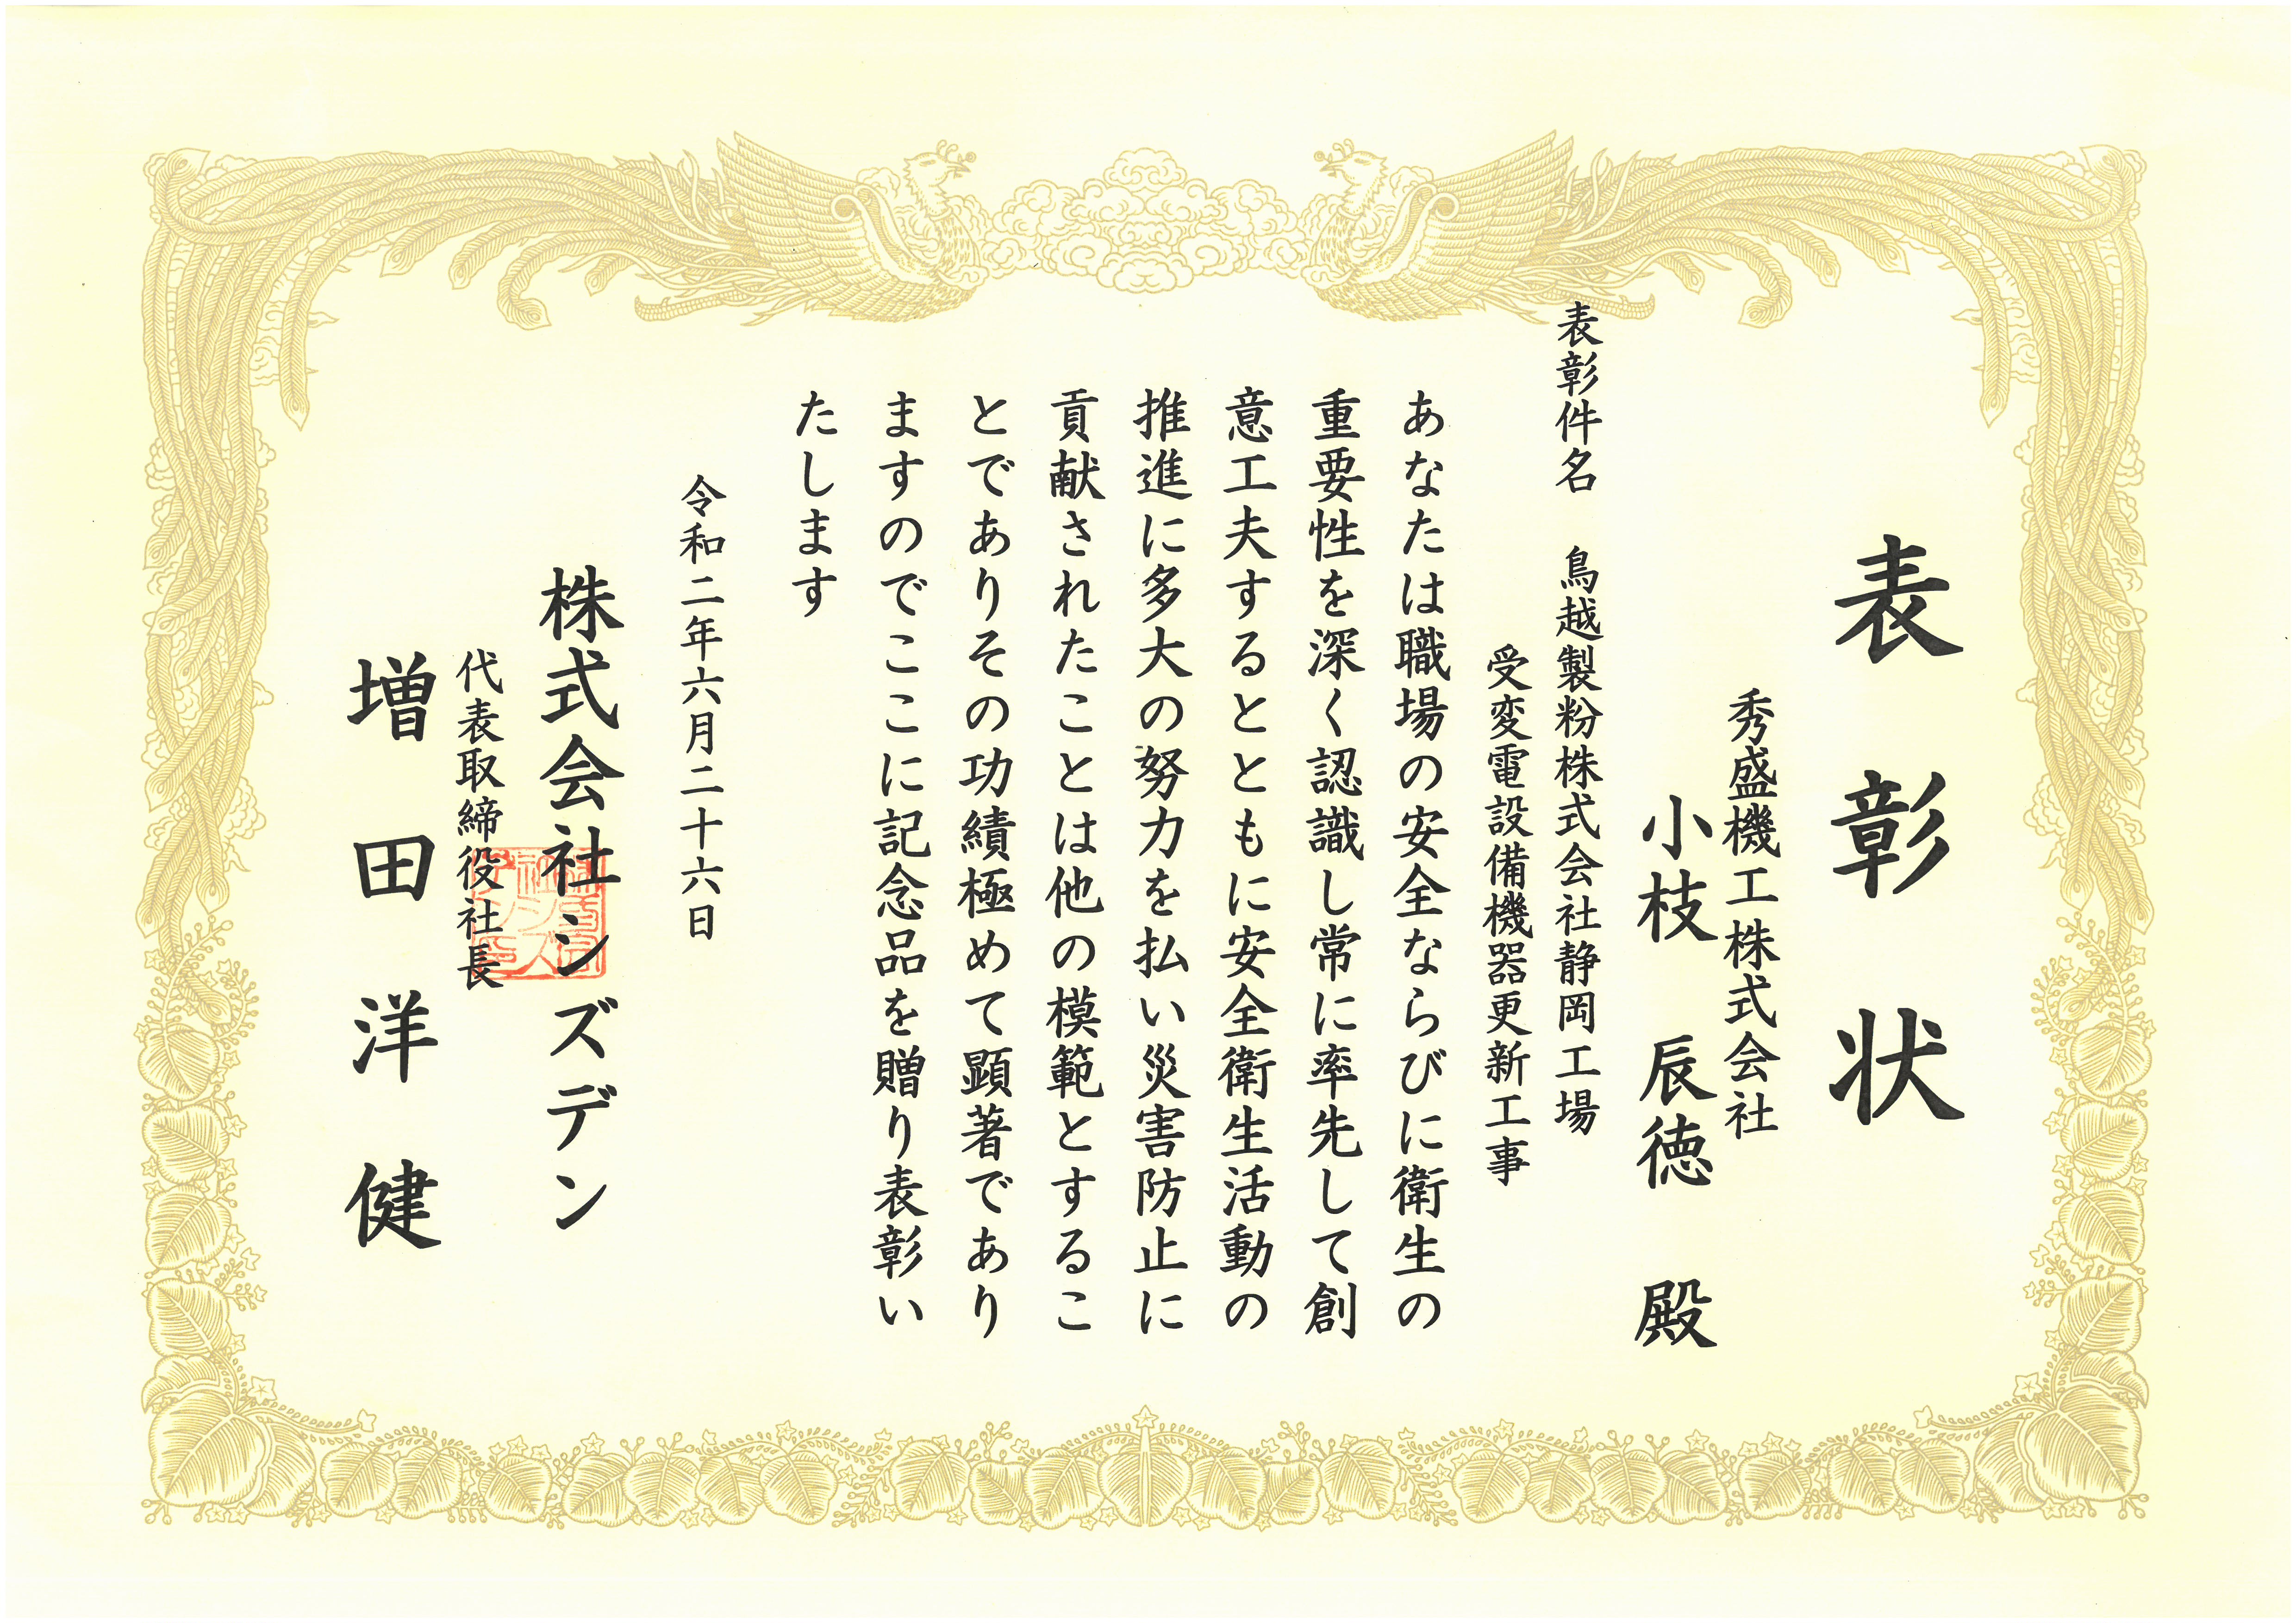 表彰状
秀盛機工株式会社
小枝 辰徳 殿
表彰件名 鳥越製粉株式会社静岡工場
受変電設備機器更新工事
あなたは職場の安全ならびに衛生の
重要性を深く認識し常に率先して創
意工夫するとともに安全衛生活動の
推進に多大の努力を払い災害防止に
貢献されたことは他の模範とするこ
とでありその功績極めて顕著であり
ますのでここに記念品を贈り表彰い
たします
令和二年六月二十六日
株式会社シンズデン
代表取締役社長
増田洋健